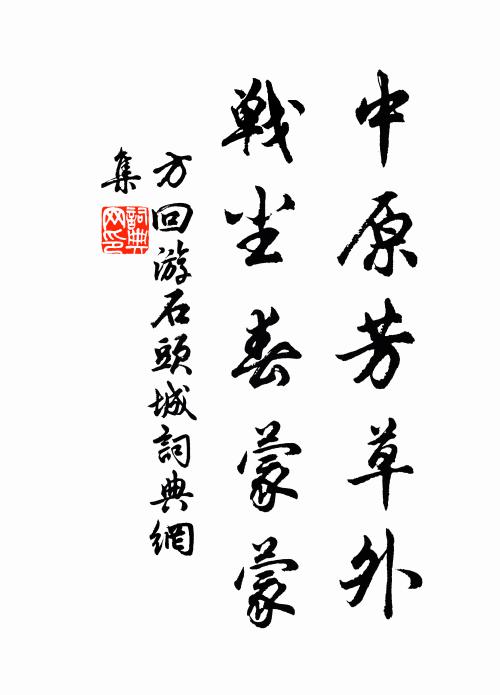 中原芳草外
戦尘春蒙蒙
方回游石頭城詞典網
集
詞典
网印